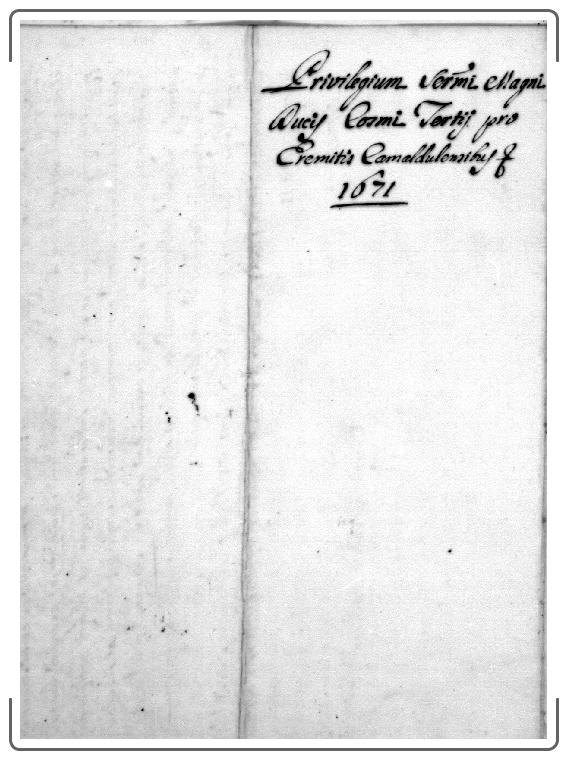 Privilegium Sermi Magni
Ducis Cosmi Tertij pro
Eremitis Camaldulensibus
1671